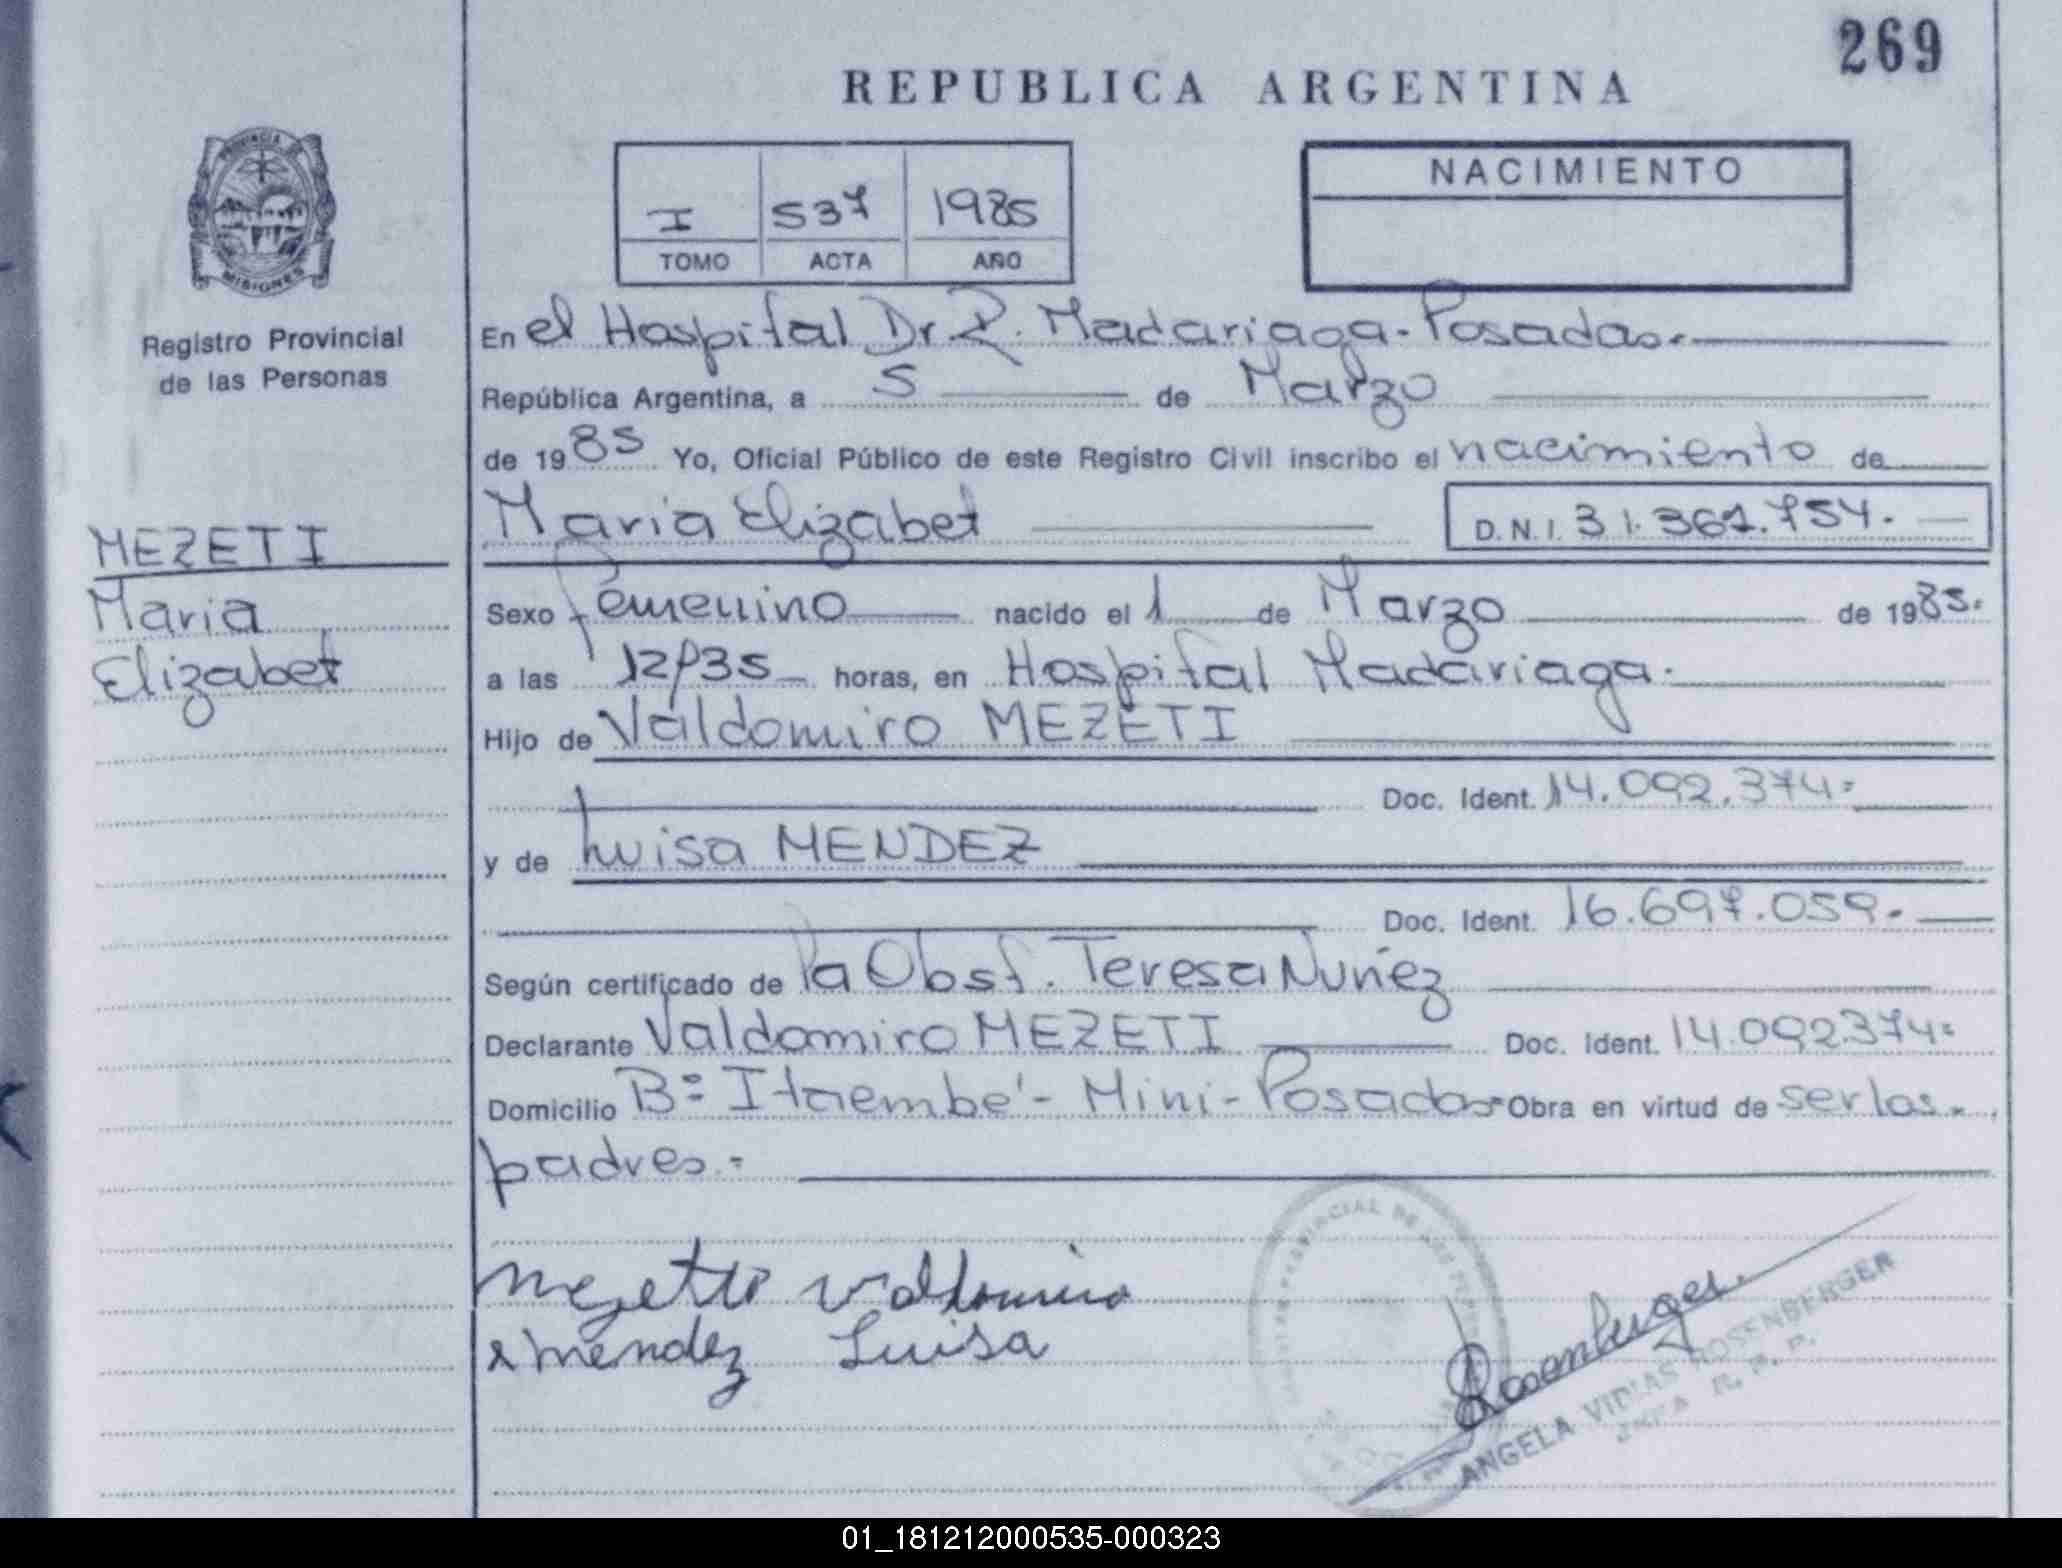 269
REPUBLICA ARGENTINA
PROVINCIA DE
MISIONES
Registro Provincial
de las Personas
I 537 1985
TOMO ACTA AÑO
NACIMIENTO
En el Hospital Dr R. Madariaga - Posadas.
República Argentina, a 5 de Marzo
de 1985 Yo, Oficial Público de este Registro Civil inscribo el nacimiento de
Maria Elizabet D.N.I. 31.361.754.
MEZETI
Maria
Elizabet
Sexo femenino nacido el 1 de Marzo de 1985.
a las 12,35 horas, en Hospital Madariaga.
Hijo de Valdomiro MEZETI
Doc. Ident. 14.092.374=
y de Luisa MENDEZ
Doc. Ident. 16.697.059.
Según certificado de la Obst. Teresa Nuñez
Declarante Valdomiro MEZETI Doc. Ident. 14.092374=
Domicilio Bº Itaembé - Mini - Posadas Obra en virtud de ser los
padres.=
Mezetti Valdomiro
Mendez Luisa
Rosenberger
ANGELA ROSENBERGER
R. P.
01_181212000535-000323